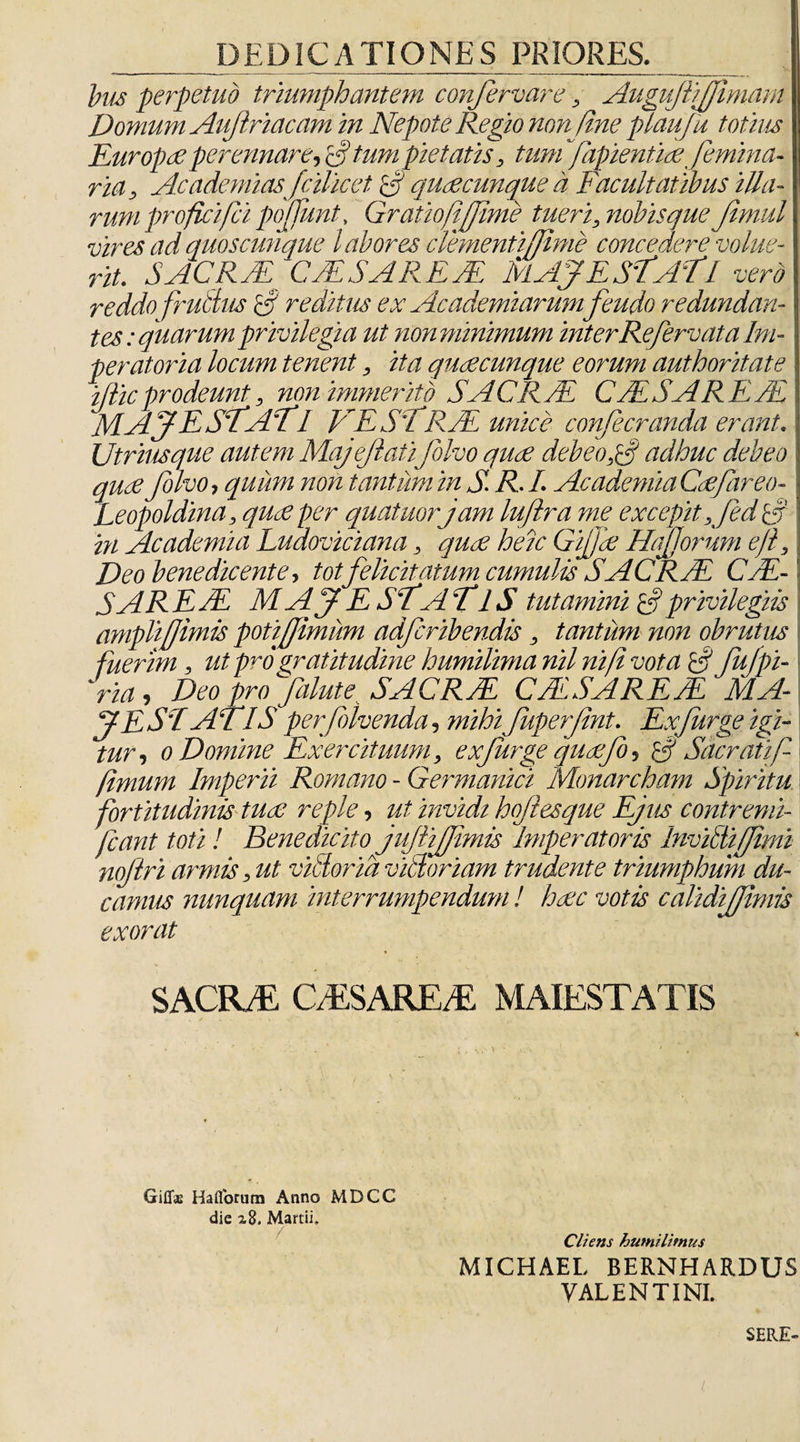 DEDICATIONES PRIORES.
bus perpetuò triumphantem conſervare, Auguſtiſſimam
Domum Auſtriacam in Nepote Regio non ſine plauſu totius
Europæ perennare, & tum pietatis, tum ſapientiæ ſemina-
ria, Academias ſcilicet & quæcunque à Facultatibus illa-
rum proficiſci poſſunt, Gratioſiſſimè tueri, nobisque ſimul
vires ad quoscunque labores clementiſſimè concedere volue-
rit. SACRÆ CÆSAREÆ MAJESTATI verò
reddo fructus & reditus ex Academiarum feudo redundan-
tes: quarum privilegia ut non minimum inter Reſervata Im-
peratoria locum tenent, ita quæcunque eorum authoritate
iſtic prodeunt, non immeritò SACRÆ CÆSAREÆ
MAJESTATI VESTRÆ unicè conſecranda erant.
Utriusque autem Majeſtati ſolvo quæ debeo, & adhuc debeo
quæ ſolvo, quùm non tantùm in S. R. I. Academia Cæſareo-
Leopoldina, quæ per quatuor jam luſtra me excepit, ſed &
in Academia Ludoviciana, quæ heic Giſſæ Haſſorum eſt,
Deo benedicente, tot felicitatum cumulis SACRÆ CÆ-
SAREÆ MAJESTATIS tutamini & privilegiis
ampliſſimis potiſſimùm adſcribendis, tantùm non obrutus
fuerim, ut pro gratitudine humilima nil niſi vota & ſuſpi-
ria, Deo pro ſalute SACRÆ CÆSAREÆ MA-
JESTATIS perſolvenda, mihi ſuperſint. Exſurge igi-
tur, o Domine Exercituum, exſurge quæſo, & Sacratiſ-
ſimum Imperii Romano-Germanici Monarcham Spiritu
fortitudinis tuæ reple, ut invidi hoſtesque Ejus contremi-
ſcant toti! Benedicito juſtiſſimis Imperatoris Invictiſſimi
noſtri armis, ut victoriâ victoriam trudente triumphum du-
camus nunquam interrumpendum! hæc votis calidiſſimis
exorat
SACRÆ CÆSAREÆ MAIESTATIS
Giſſæ Haſſorum Anno MDCC
die 28. Martii.
Cliens humilimus
MICHAEL BERNHARDUS
VALENTINI.
SERE-